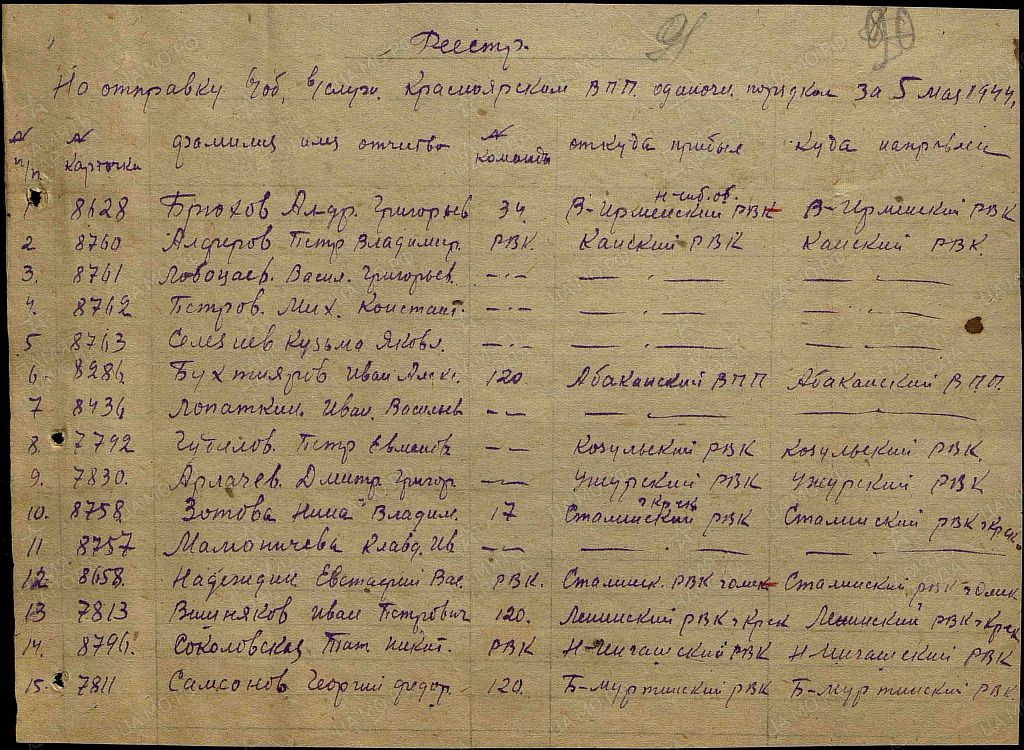 91 90
Реестр.
На отправку в/об, в/служ. Красноярским ВПП. одиночн. порядком за 5 мая 1944г.
№ п/п № карточки фамилия имя отчество № команды откуда прибыл куда направлен
1 8628 Брюхов Ал-др. Григорьев 34 В-Ирменский н-сиб. об. РВК В-Ирменский РВК
2 8760 Алферов Петр Владимир. РВК. Канский РВК Канский РВК.
3. 8761 Васил. Григорьев. —·— — · — — · —
4. 8762 Петров. Мих. Констант. —·— — · — — · —
5 8763 Селезнев Кузьма Яковл. —·— — · — — · —
6. 8286 Бухтияров Иван Алекс. 120. Абаканский ВПП Абаканский ВПП.
7 8436 Лопаткин. Иван. Васильев —— — — — —
8. 7792 Губилов. Петр Евменов —— Козульский РВК Козульский РВК.
9. 7830. Арлачев. Дмитр. Григор. —— Ужурский РВК Ужурский РВК
10. 8758. Зотова Нина Владим. 17 Сталинский г Крск РВК Сталинский РВК г Крск.
11 8757 Мамоничева Клавд. Ив. —— — · — — · —
12 8658. Надеждин Евстафий Вас. РВК. Сталинск. РВК г Омск Сталинский РВК г Омск
13 7813 Вшиняков Иван Петрович 120. Ленинский РВК г Крск Ленинский РВК г Крск
14. 8796. Соколовская Тат. Никит. РВК Н-Ингашский РВК Н-Ингашский РВК
15. 7811 Самсонов Георгий Федор. 120. Б-Муртинский РВК Б-Муртинский РВК.